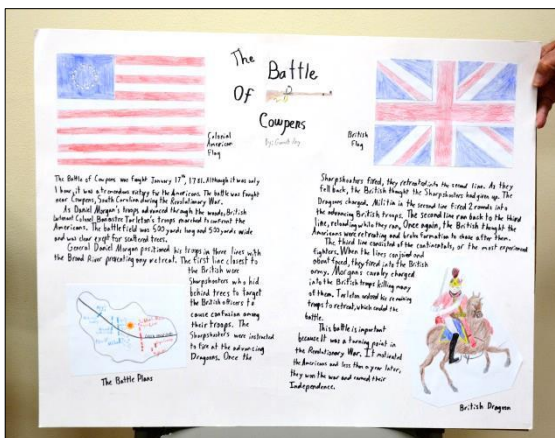 The
Battle
Of
Cowpens
By:
Colonial
American
Flag
British
Flag
The Battle of Cowpens was fought January 17th, 1781. Although it was only
1 hour, it was a tremendous victory for the Americans. The battle was fought
near Cowpens, South Carolina during the Revolutionary War.
As Daniel Morgan's troops advanced through the woods, British
Lieutenant Colonel Banastre Tarleton's troops marched to confront the
Americans. The battlefield was 500 yards long and 500 yards wide
and was clear except for scattered trees.
General Daniel Morgan positioned his troops in three lines with
the Broad River preventing any retreat. The first line closest to
the British were
Sharpshooters who hid
behind trees to target
the British officers to
cause confusion among
their troops. The
Sharpshooters were instructed
to fire at the advancing
Dragoons. Once the
The Battle Plans
Sharpshooters fired, they retreated into the second line. As they
fell back, the British thought the Sharpshooters had given up. The
Dragoons charged. Militia in the second line fired 2 rounds into
the advancing British troops. The second line ran back to the third
line, reloading while they ran. Once again, the British thought the
Americans were retreating and broke formation to chase after them.
The third line consisted of the continentals, or the most experienced
fighters. When the lines conjoined and
about faced, they fired into the British
army. Morgan's cavalry charged
into the British troops killing many
of them. Tarleton ordered his remaining
troops to retreat, which ended the
battle.
This battle is important
because it was a turning point in
the Revolutionary War. It motivated
the Americans and less than a year later,
they won the war and earned their
Independence.
British Dragoon